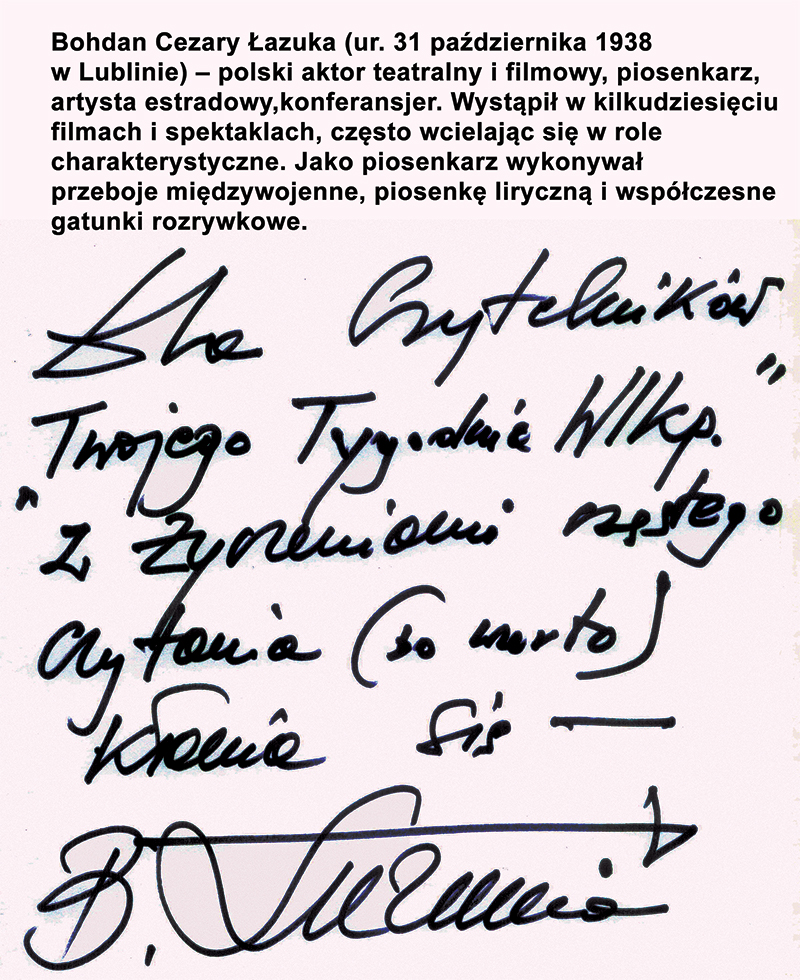 Bohdan Cezary Łazuka (ur. 31 października 1938
w Lublinie) – polski aktor teatralny i filmowy, piosenkarz,
artysta estradowy,konferansjer. Wystąpił w kilkudziesięciu
filmach i spektaklach, często wcielając się w role
charakterystyczne. Jako piosenkarz wykonywał
przeboje międzywojenne, piosenkę liryczną i współczesne
gatunki rozrywkowe.
Dla Czytelników
Twojego Tygodnia Wlkp."
"Z życzeniami częstego
czytania (bo warto)
kłania się —
B. Łazuka